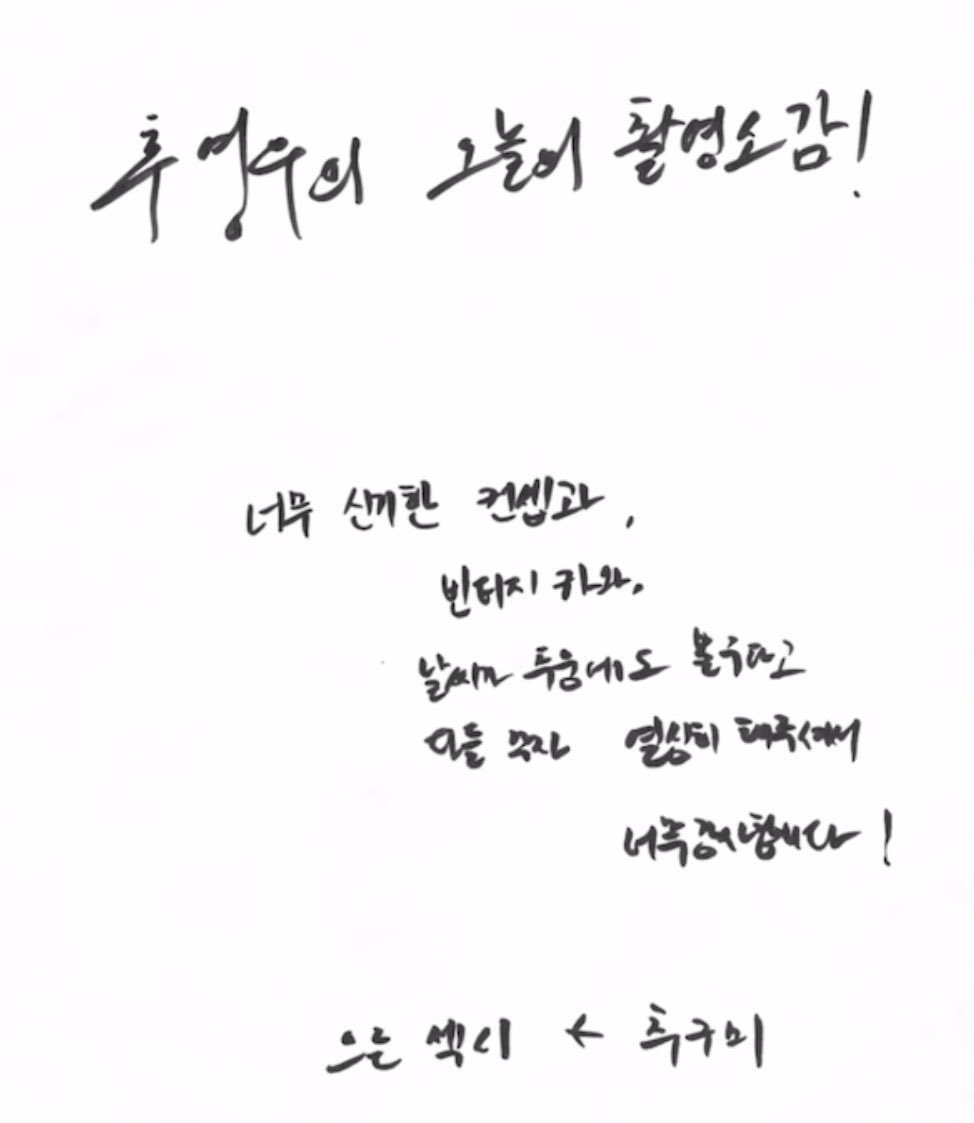 추영우의 오늘의 촬영소감!
너무 신기한 컨셉과,
빈티지 카와,
날씨가 추움에도 불구하고
다들 열심히 해주셔서
너무 감사합니다!
오늘 섹시 ← 추구미